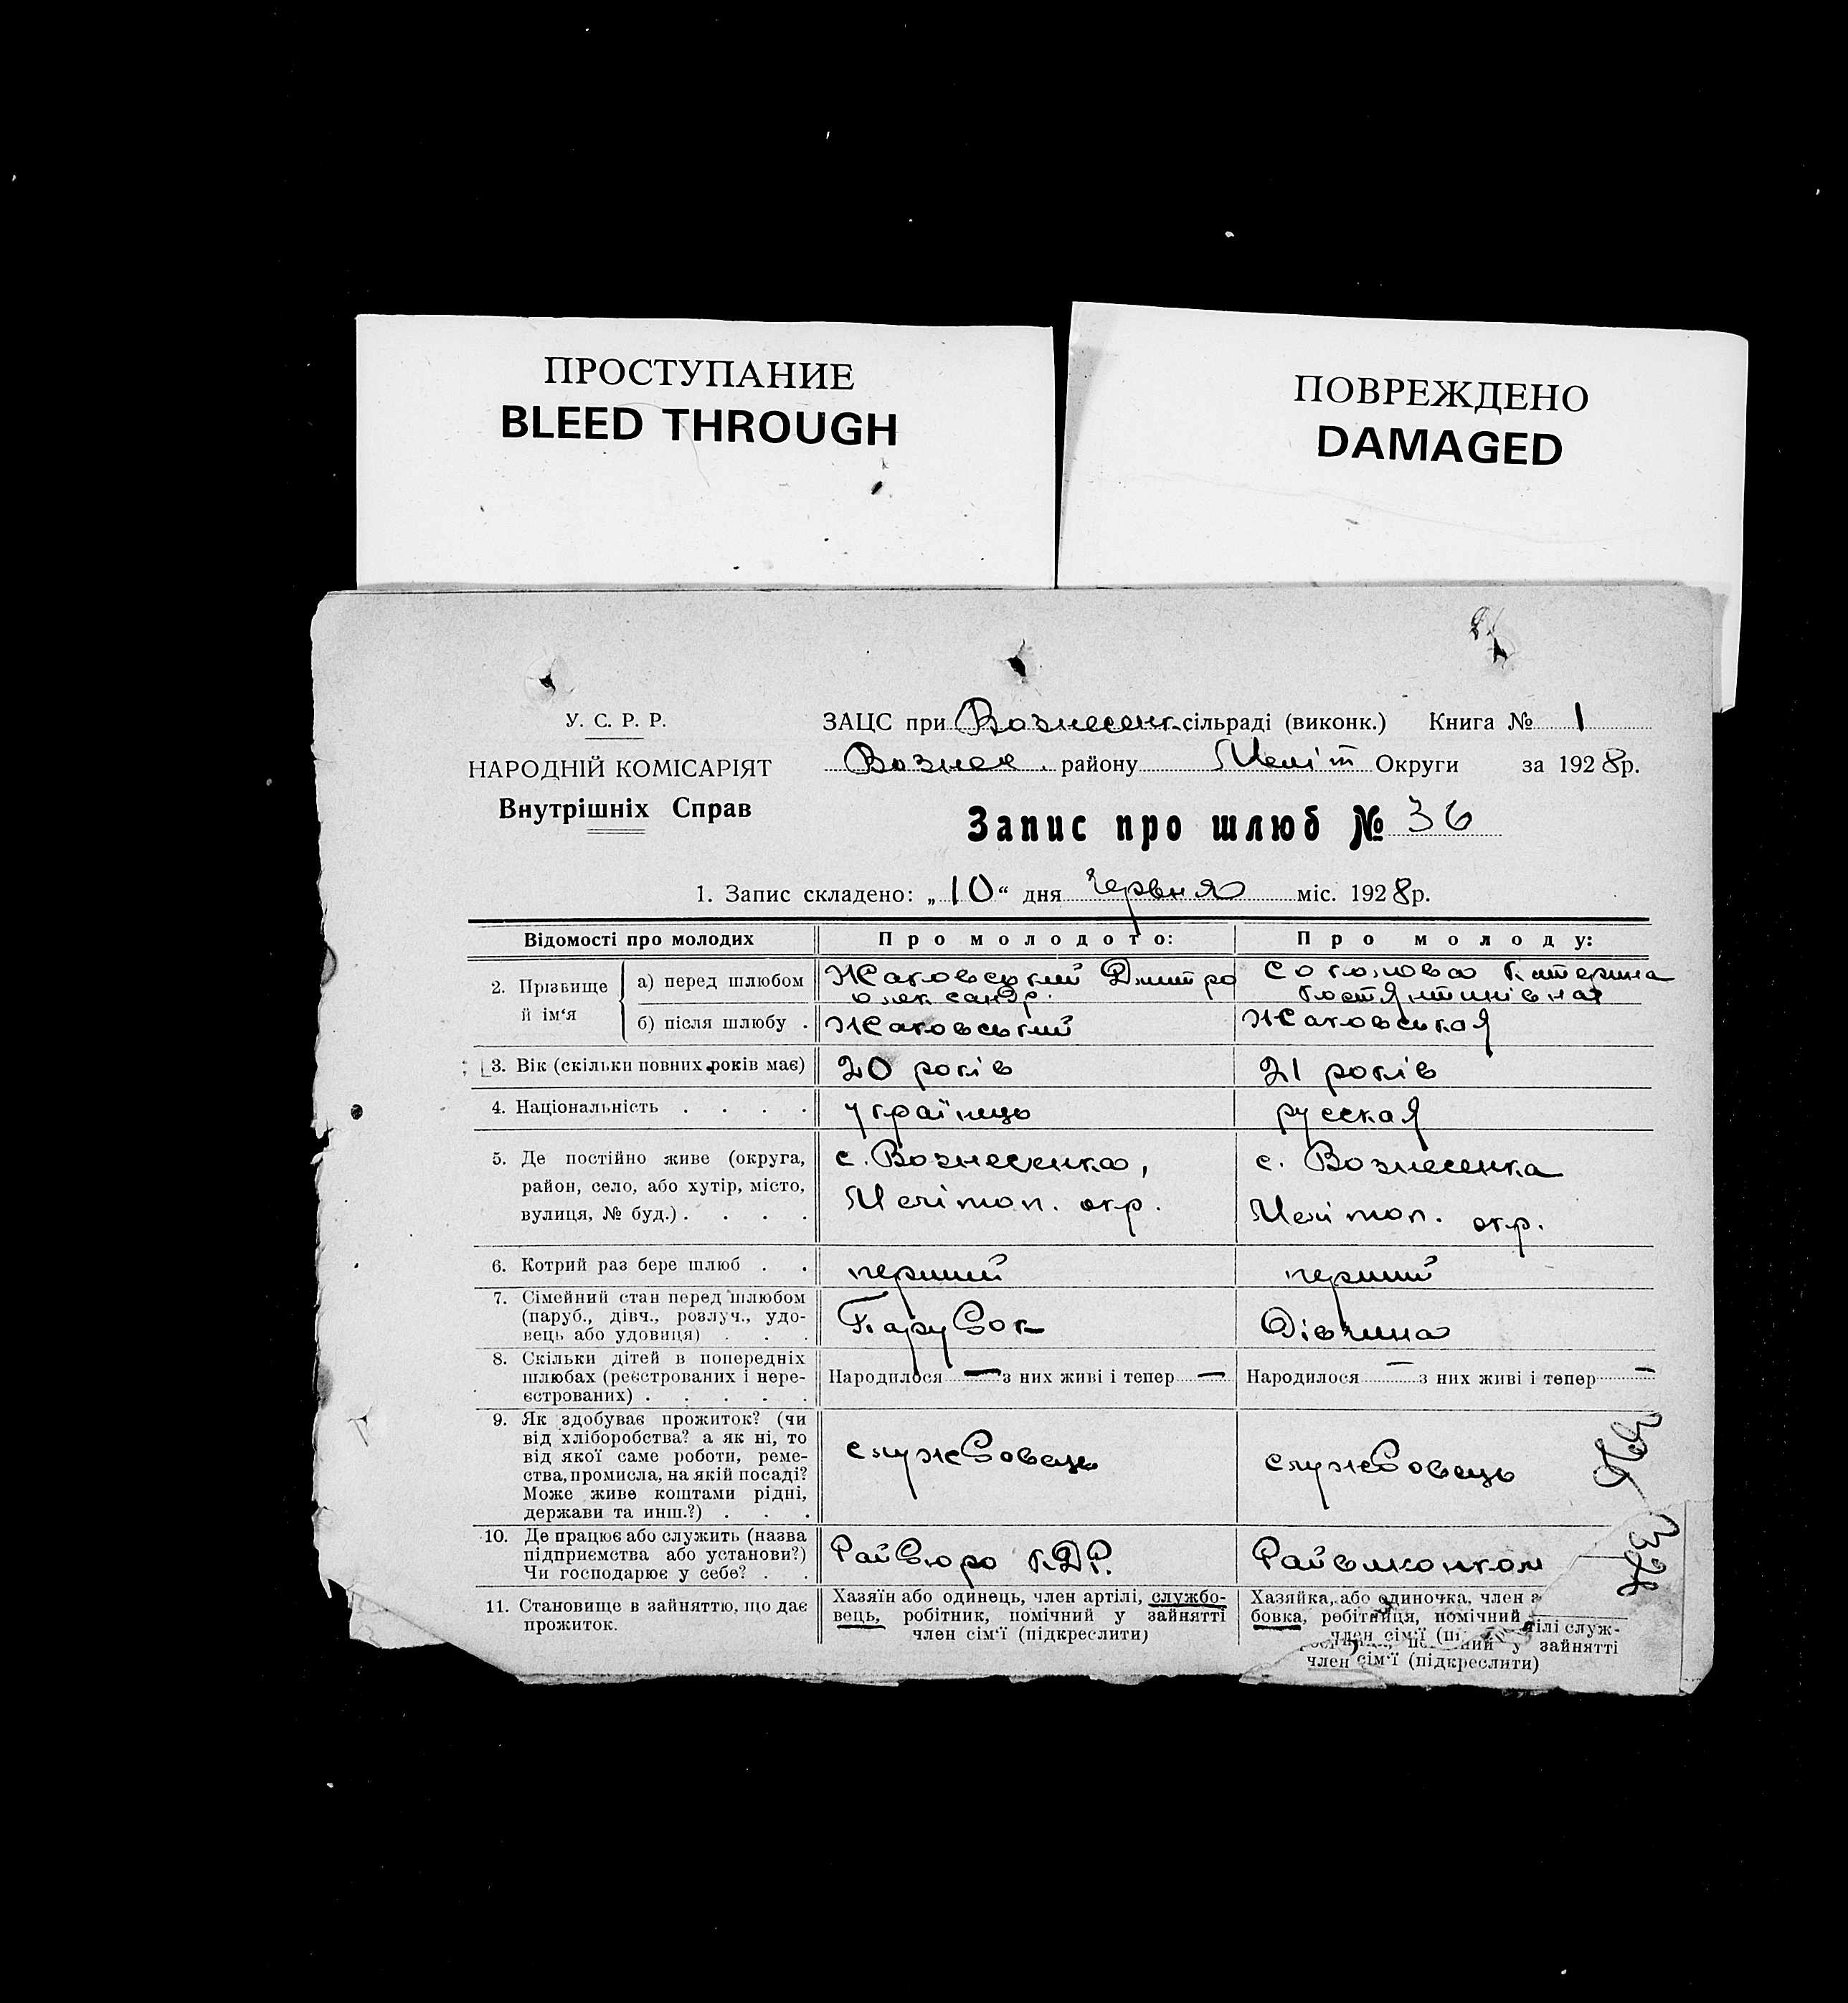 ПРОСТУПАНИЕ
BLEED THROUGH
ПОВРЕЖДЕНО
DAMAGED
У. С. Р. Р.
НАРОДНІЙ КОМІСАРІЯТ
Внутрішніх Справ
ЗАЦС при Вознесенк. сільраді (виконк.) Книга № 1
Вознес. району Меліт Округи за 1928р.
Запис про шлюб № 36
1. Запис складено: „10“ дня червня міс. 1928р.
Відомості про молодих
Про молодого:
Про молоду:
2. Прізвище й ім‘я
а) перед шлюбом
Жаковський Дмитро
олександр.
Соколова Катерина
Костянтинівна
б) після шлюбу .
Жаковський
Жаковська
3. Вік (скільки повних років має)
20 років
21 років
4. Національність . . . .
українець
русская
5. Де постійно живе (округа,
район, село, або хутір, місто,
вулиця, № буд.) . . . .
с. Вознесенка,
Мелітоп. окр.
с. Вознесенка
Мелітоп. окр.
6. Котрий раз бере шлюб . .
перший
перший
7. Сімейний стан перед шлюбом
(паруб., дівч., розлуч., удо-
вець або удовиця) . . .
Парубок
Дівчина
8. Скільки дітей в попередніх
шлюбах (реєстрованих і нере-
єстрованих) . . . . .
Народилося — з них живі і тепер —
Народилося — з них живі і тепер —
9. Як здобуває прожиток? (чи
від хліборобства? а як ні, то
від якої саме роботи, реме-
ства, промисла, на якій посаді?
Може живе коштами рідні,
держави та инш.?) . . .
службовець
службовець
10. Де працює або служить (назва
підприємства або установи?)
Чи господарює у себе? . .
Райбюро К.Д.Р.
Райвиконком
11. Становище в зайняттю, що дає
прожиток.
Хазяїн або одинець, член артілі, службо-
вець, робітник, помічний у зайнятті
член сім‘ї (підкреслити)
Хазяйка, або одиночка, член
бовка, робітниця, помічний
член сім‘ї
тілі служ-
у зайнятті
член сім‘ї (підкреслити)